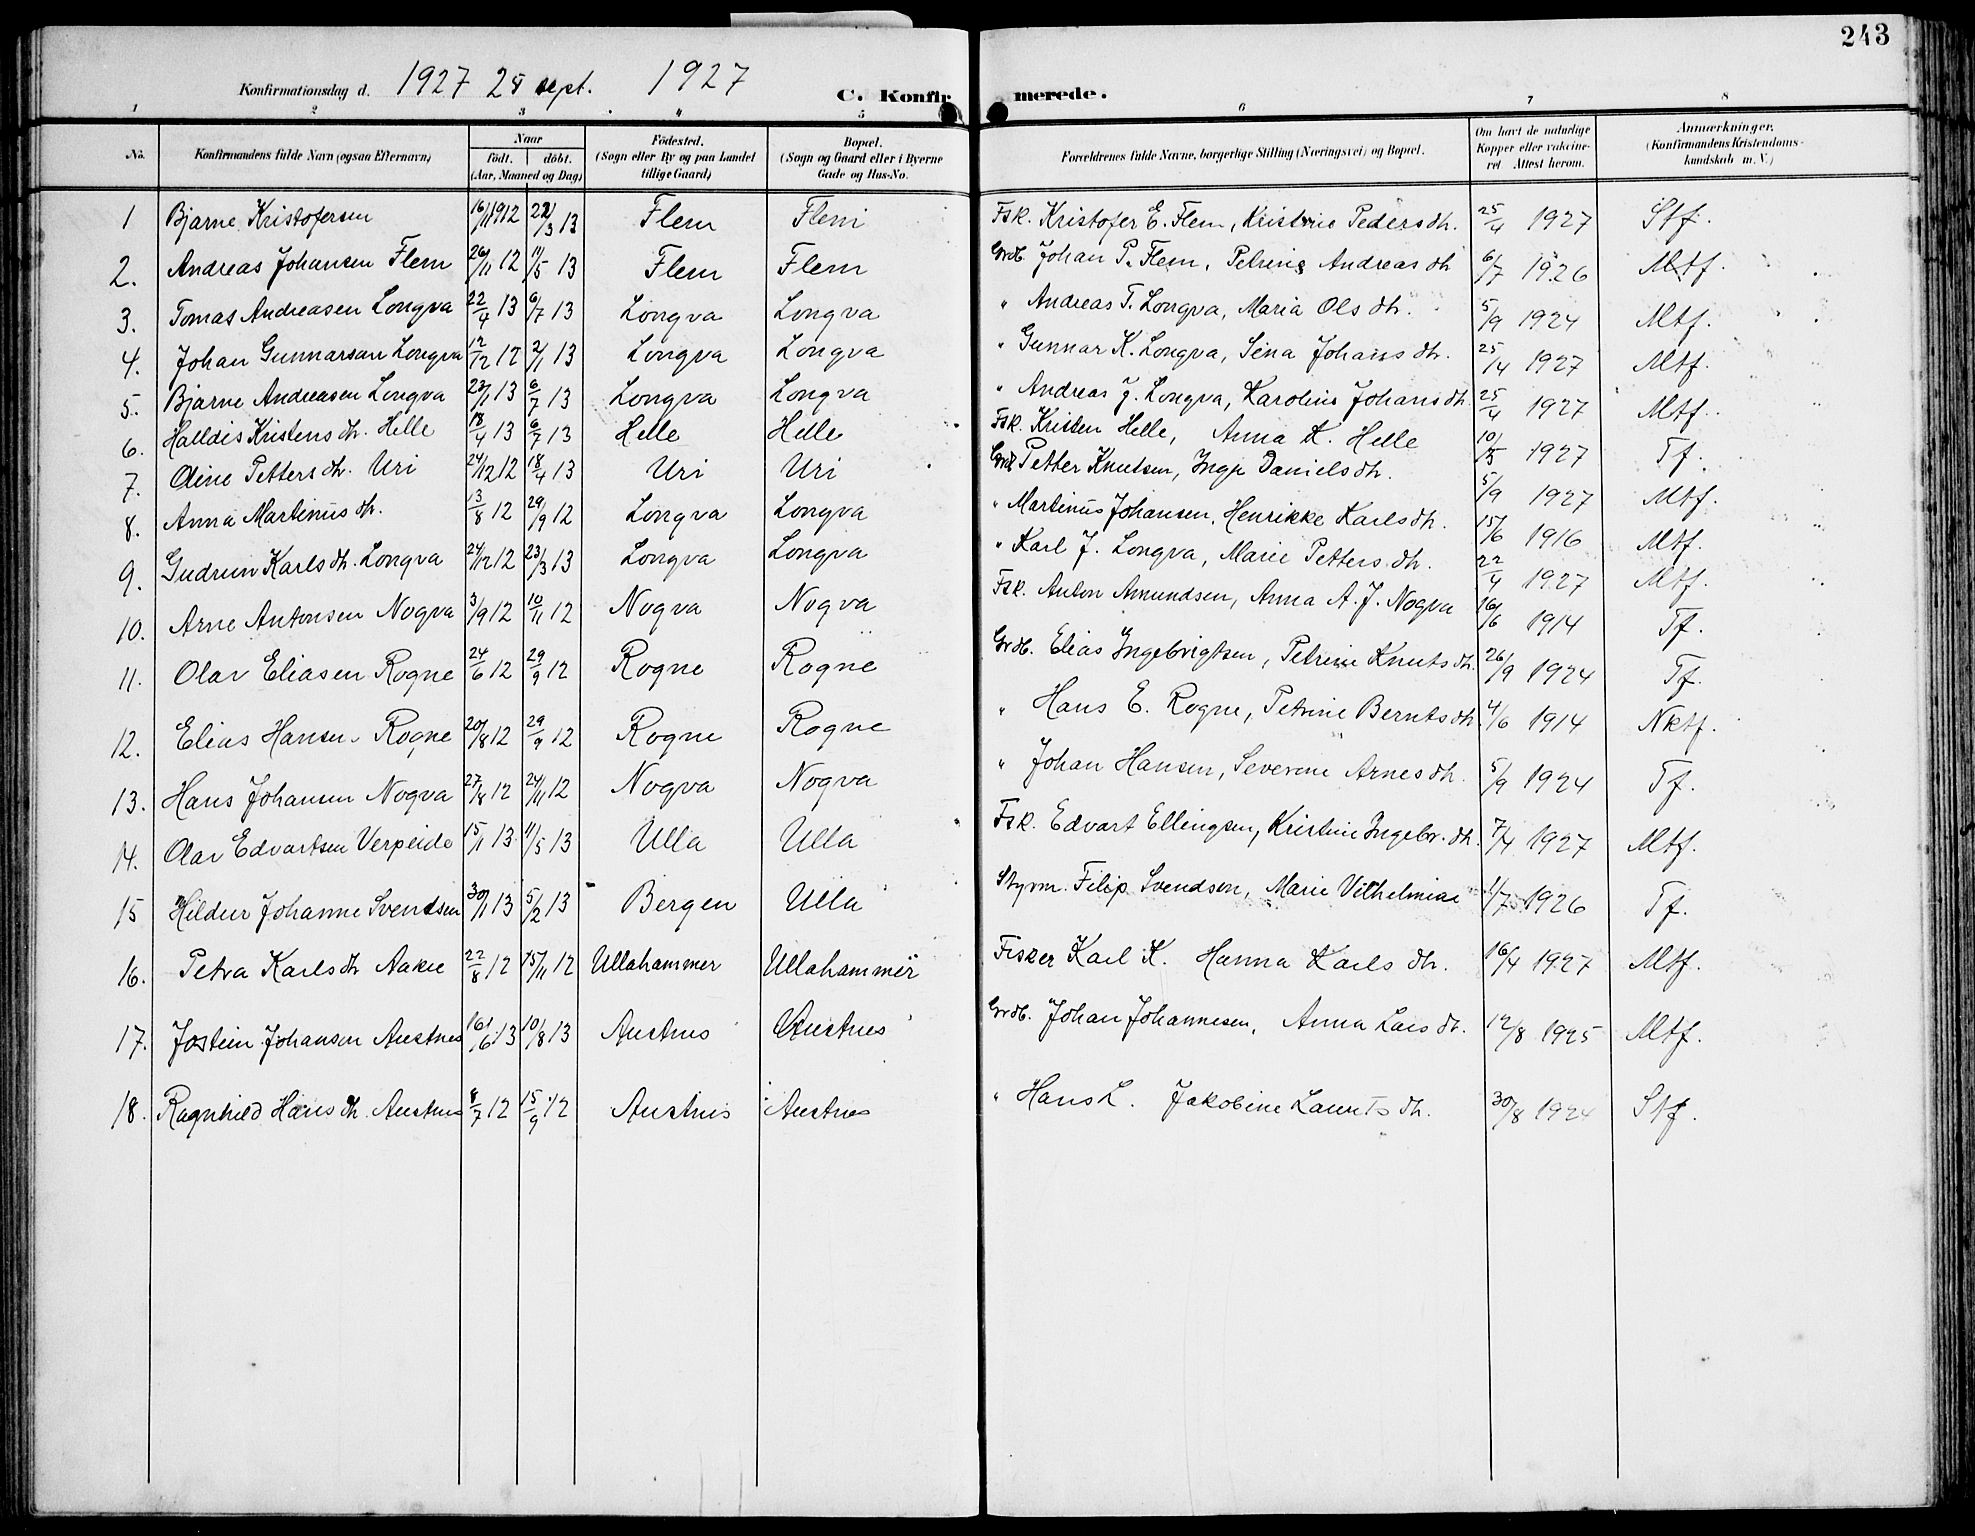 243
Konfirmationsdag d. 1927 25 sept. 1927 C. Konfirmerede.
1 2 3 4 5 6 7 8
No. Konfirmandens fulde Navn (ogsaa Efternavn) Naar født. døbt. (Aar, Maaned og Dag) Fødested. (Sogn eller By og paa Landet tillige Gaard) Bopæl. (Sogn og Gaard eller i Byerne Gade og Hus-No. Forældrenes fulde Navne, borgerlige Stilling (Næringsvei) og Bopæl. Om havt de naturlige Kopper eller vakcineret Attest herom. Anmærkninger. (Konfirmandens Kristendomskundskab m. V.)
1 Bjarne Kristofersen 16/11 1912 /3 13 Flem Flem Fsk. Kristofer E. Flem, Kristine Pedersdh. 25/4 1927 Stf.
2. Andreas Johansen Flem 26/11 12 11/5 13 Flem Flem Grdb. Johan P. Flem, Petrine Andreasdh 6/7 1926 Mtf.
3. Tomas Andreasen Longva 22/4 13 6/7 13 Longva Longva " Andreas T. Longva, Maria Olsdh. 5/9 1924 Mtf.
4. Johan Gunnarsen Longva 12/12 12 2/1 13 Longva Longva " Gunnar K. Longva, Sina Johansdh. 25/4 1927 Mtf.
5. Bjarne Andreasen Longva 23/1 13 6/7 13 Longva Longva " Andreas J. Longva, Karoline Johansdh 25/4 1927 Mtf.
6. Halldis Kristensdh. Helle 18/4 13 6/7 13 Helle Helle Fsk. Kristen Helle, Anna K. Helle 10/5 1927 Tf.
7. Oline Pettersdh. Uri 24/12 12 18/4 13 Uri Uri Grdb. Petter Knutsen, Inga Danielsdh. 5/9 1927 Mtf.
8. Anna Martinusdh. 13/8 12 29/9 12 Longva Longva " Martinus Johansen, Henrikke Karlsdh. 15/6 1916 Mtf.
9. Gudrun Karlsdh. Longva 24/12 12 23/3 13 Longva Longva " Karl J. Longva, Marie Pettersdh. 22/4 1927 Mtf.
10. Arne Antonsen Nogva 3/9 12 10/11 12 Nogva Nogva Fsk. Anton Amundsen, Anna A. J. Nogva 16/6 1914 Tf.
11. Olav Eliasen Rogne 24/6 12 29/9 12 Rogne Rogne Grdb. Elias Ingebrigtsen, Petrine Knutsdh. 26/9 1924 Tf.
12. Elias Hansen Rogne 20/8 12 29/9 12 Rogne Rogne " Hans E. Rogne, Petrine Berntsdh 4/6 1914 Nktf.
13. Hans Johansen Nogva 27/8 12 24/11 12 Nogva Nogva " Johan Hansen, Severine Arnesdh. 5/9 1924 Tf.
14. Olav Edvartsen Verpeide 15/1 13 11/5 13 Ulla Ulla Fsk. Edvart Ellingsen, Kristine Ingebr.dh. 7/4 1927 Mtf.
15 Hildur Johanne Svendsen 30/1 13 5/2 13 Bergen Ulla Styrm. Filip Svendsen, Marie Vilhelmine 1/7 1926 Tf.
16. Petra Karlsdh Aakre 22/8 12 15/11 12 Ullahammer Ullahammer Fisker Karl K. Hanna Karlsdh. 16/4 1927 Mtf.
17. Jostein Johansen Austnes 16/6 13 10/8 13 Austnes Austnes Grdb. Johan Johannesen, Anna Larsdt. 12/8 1925 Mtf.
18. Ragnhild Hansdh. Austnes 8/7 12 15/9 12 Austnes Austnes " Hans L. Jakobine Lauritsdh. 30/8 1924 Stf.